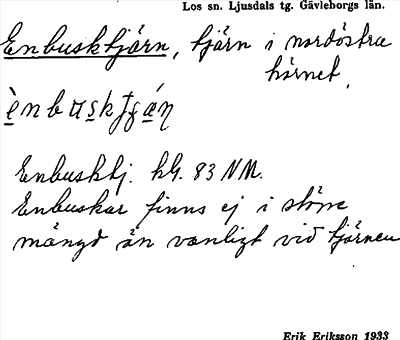 Los sn. Ljusdals tg. Gävleborgs län.
Enbusktjärn, tjärn i nordöstra
hörnet.
Enbusktj. kbl. 83 NM.
Enbuskar finns ej i större
mängd än vanligt vid tjärnen
Erik Eriksson 1933